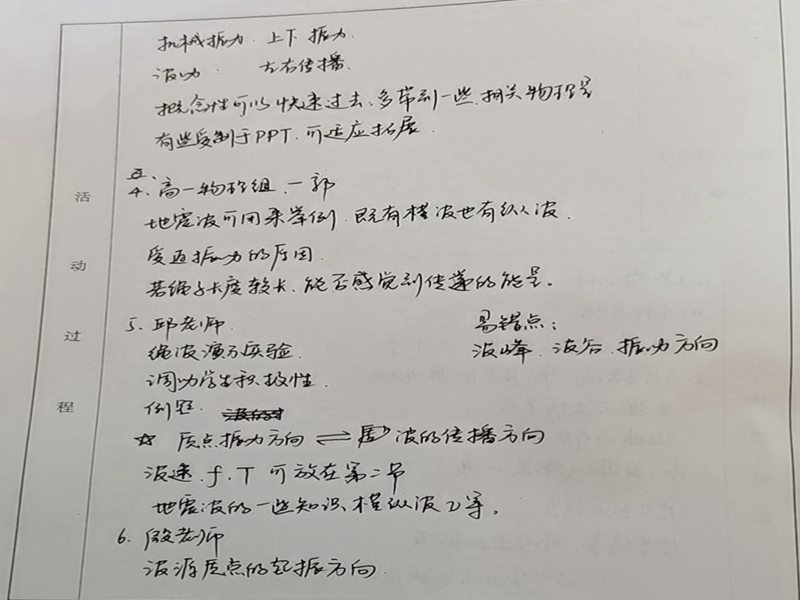 机械振动. 上下振动.
波动: 左右传播.
概念性可以快速过去, 多带到一些相关物理量
有些受制于PPT, 可适应拓展.
五、
4. 高一物理组, 一郭
地震波可用来举例, 既有横波也有纵波.
受迫振动的原因.
若绳子长度较长, 能否感觉到传递的能量。
5. 邱老师. 易错点:
绳波演示实验. 波峰、波谷、振动方向
调动学生积极性.
例题.
☆ 质点振动方向 ⇌ 波的传播方向
波速、f、T 可放在第二节
地震波的一些知识, 横纵波 v 等。
6. 殷老师
波源质点的起振方向
活动过程